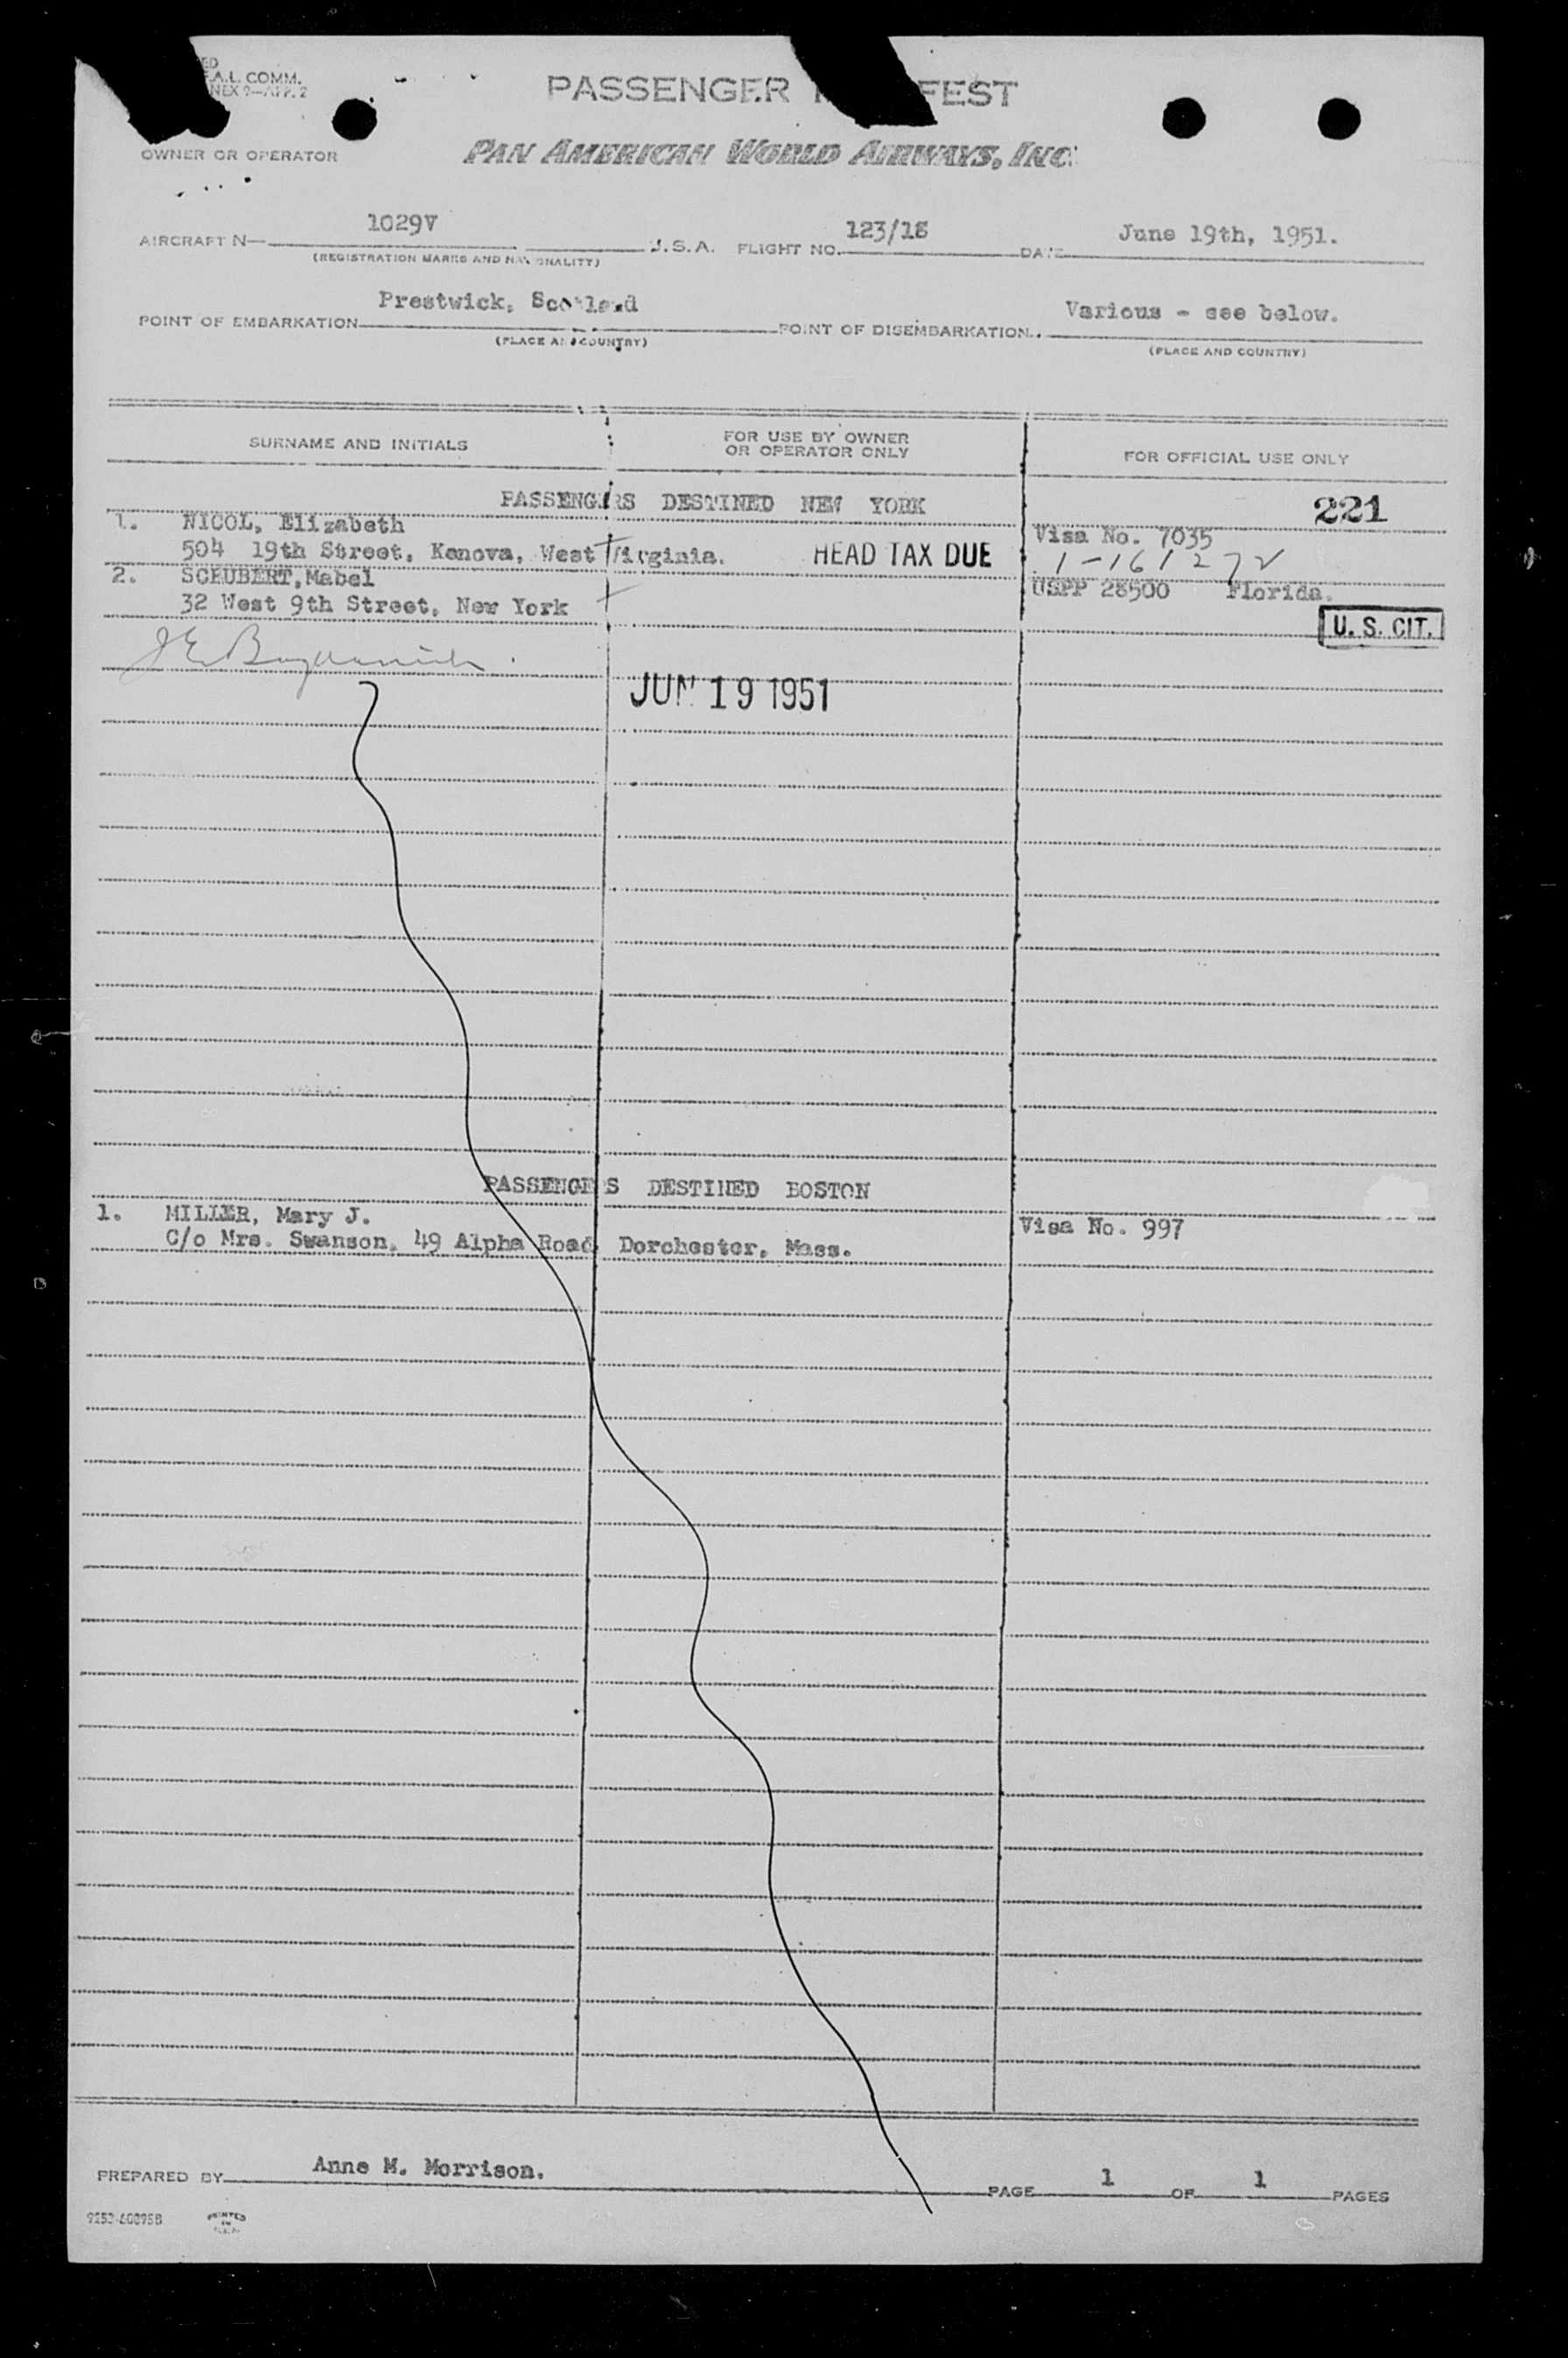 ED
A.L. COMM.
NEX 9—APP. 2
PASSENGER FEST
OWNER OR OPERATOR
PAN AMERICAN WORLD AIRWAYS, INC.
AIRCRAFT N— 1029V U.S.A. FLIGHT NO. 123/18 DATE June 19th, 1951.
(REGISTRATION MARKS AND NATIONALITY)
POINT OF EMBARKATION Prestwick, Scotland POINT OF DISEMBARKATION Various - see below.
(PLACE AND COUNTRY) (PLACE AND COUNTRY)
SURNAME AND INITIALS FOR USE BY OWNER OR OPERATOR ONLY FOR OFFICIAL USE ONLY
PASSENGERS DESTINED NEW YORK 221
1. NICOL, Elizabeth Visa No. 7035
504 19th Street, Kenova, West Virginia. HEAD TAX DUE 1-161272
2. SCHUBERT, Mabel USPP 28500 Florida.
32 West 9th Street, New York
U. S. CIT.
JUN 19 1951
PASSENGERS DESTINED BOSTON
1. MILLER, Mary J. Visa No. 997
C/o Mrs. Swanson, 49 Alpha Road, Dorchester, Mass.
PREPARED BY Anne M. Morrison. PAGE 1 OF 1 PAGES
PRINTED
IN